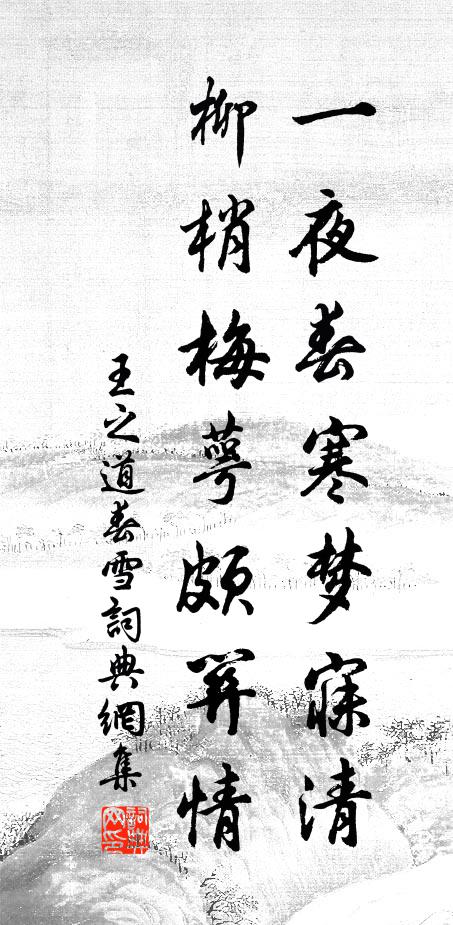 一夜春寒梦寐清
柳梢梅萼颇關情
王之道春雪詞典網集